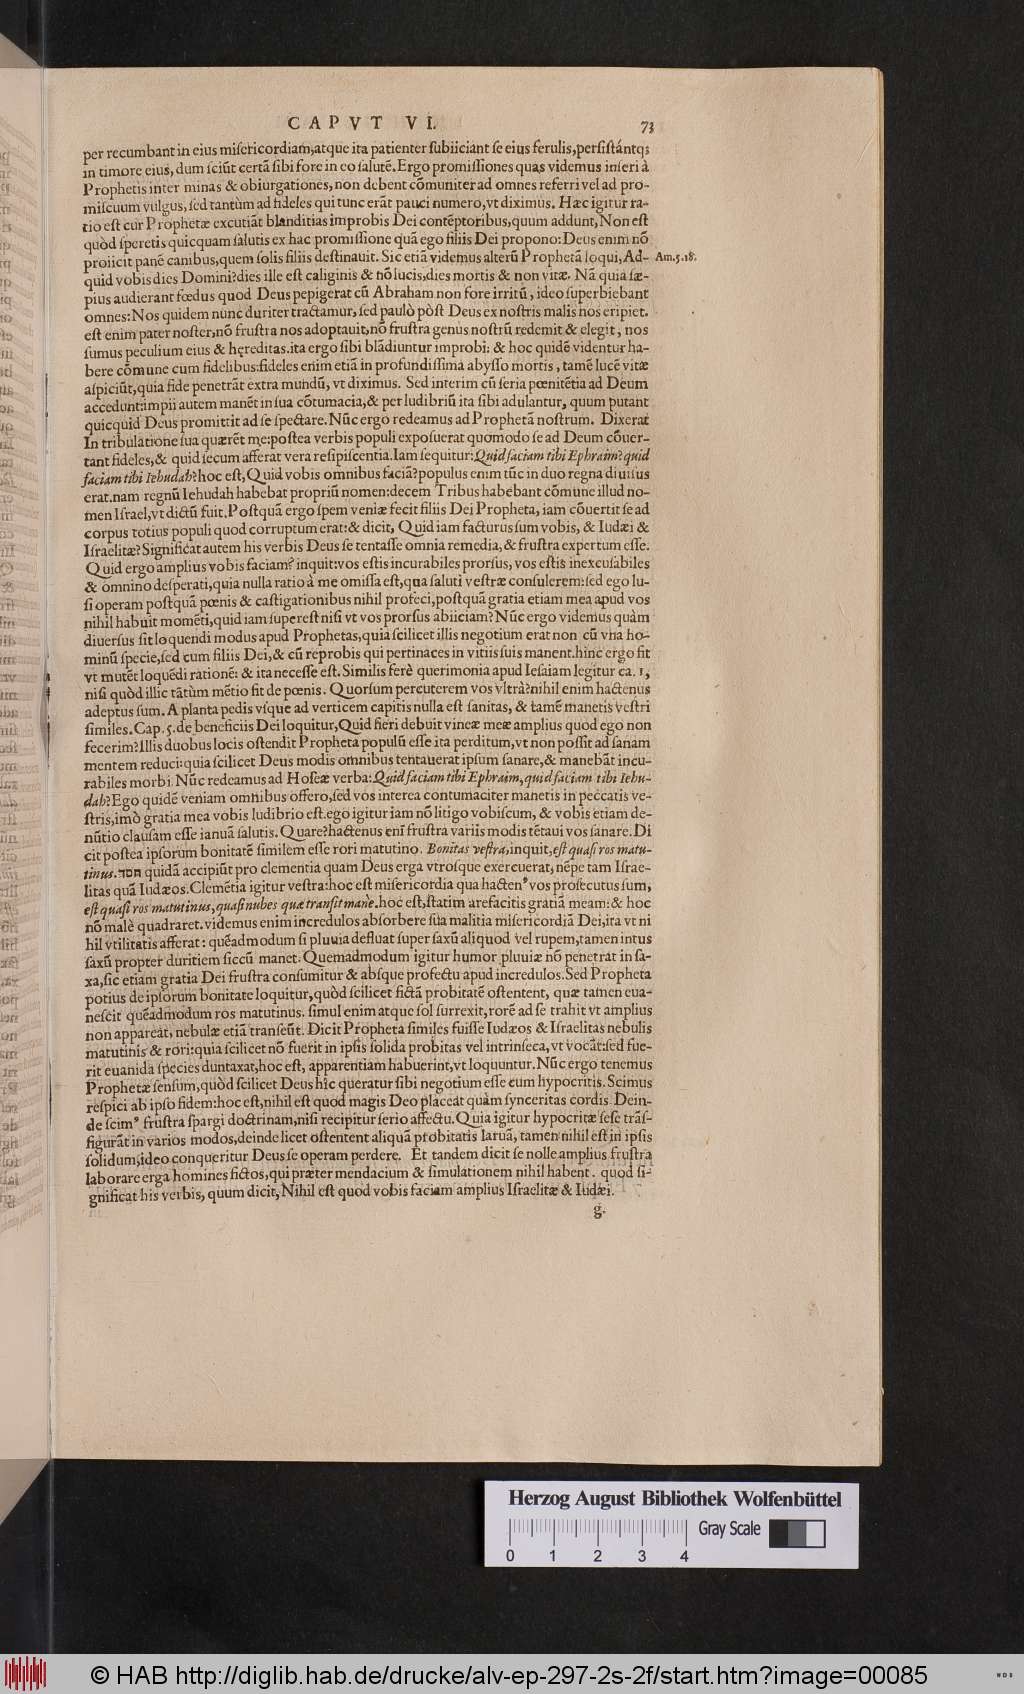 CAPVT VI. 73
per recumbant in eius misericordiam, atque ita patienter subiiciant se eius ferulis, persistántq;
in timore eius, dum sciūt certā sibi fore in eo salutē. Ergo promissiones quas videmus inseri à
Prophetis inter minas & obiurgationes, non debent cōmuniter ad omnes referri vel ad pro-
miscuum vulgus, sed tantùm ad fideles qui tunc erāt pauci numero, vt diximus. Hæc igitur ra-
tio est cur Prophetæ excutiāt blanditias improbis Dei contēptoribus, quum addunt, Non est
quòd speretis quicquam salutis ex hac promissione quā ego filiis Dei propono: Deus enim nō
proiicit panē canibus, quem solis filiis destinauit. Sic etiā videmus alterū Prophetā loqui, Ad- Am. 5. 18.
quid vobis dies Domini? dies ille est caliginis & nō lucis, dies mortis & non vitæ. Nā quia sæ-
pius audierant fœdus quod Deus pepigerat cū Abraham non fore irritū, ideo superbiebant
omnes: Nos quidem nunc duriter tractamur, sed paulò pòst Deus ex nostris malis nos eripiet.
est enim pater noster, nō frustra nos adoptauit, nō frustra genus nostrū redemit & elegit, nos
sumus peculium eius & hęreditas. ita ergo sibi blādiuntur improbi: & hoc quidē videntur ha-
bere cōmune cum fidelibus: fideles enim etiā in profundissima abysso mortis, tamē lucē vitæ
aspiciūt, quia fide penetrāt extra mundū, vt diximus. Sed interim cū seria pœnitētia ad Deum
accedunt: impii autem manēt in sua cōtumacia, & per ludibriū ita sibi adulantur, quum putant
quicquid Deus promittit ad se spectare. Nūc ergo redeamus ad Prophetā nostrum. Dixerat
In tribulatione sua quærēt me: postea verbis populi exposuerat quomodo se ad Deum cōuer-
tant fideles, & quid secum afferat vera resipiscentia. Iam sequitur: Quid faciam tibi Ephraim? quid
faciam tibi Iehudah? hoc est, Quid vobis omnibus faciā? populus enim tūc in duo regna diuisus
erat. nam regnū Iehudah habebat propriū nomen: decem Tribus habebant cōmune illud no-
men Israel, vt dictū fuit. Postquā ergo spem veniæ fecit filiis Dei Propheta, iam cōuertit se ad
corpus totius populi quod corruptum erat: & dicit, Quid iam facturus sum vobis, & Iudæi &
Israelitæ? Significat autem his verbis Deus se tentasse omnia remedia, & frustra expertum esse.
Quid ergo amplius vobis faciam? inquit: vos estis incurabiles prorsus, vos estis inexcusabiles
& omnino desperati, quia nulla ratio à me omissa est, qua saluti vestræ consulerem: sed ego lu-
si operam postquā pœnis & castigationibus nihil profeci, postquā gratia etiam mea apud vos
nihil habuit momēti, quid iam superest nisi vt vos prorsus abiiciam? Nūc ergo videmus quàm
diuersus sit loquendi modus apud Prophetas, quia scilicet illis negotium erat non cū vna ho-
minū specie, sed cum filiis Dei, & cū reprobis qui pertinaces in vitiis suis manent. hinc ergo fit
vt mutēt loquēdi rationē: & ita necesse est. Similis ferè querimonia apud Iesaiam legitur ca. 1,
nisi quòd illic tātùm mētio fit de pœnis. Quorsum percuterem vos vltrà? nihil enim hactenus
adeptus sum. A planta pedis vsque ad verticem capitis nulla est sanitas, & tamē manetis vestri
similes. Cap. 5. de beneficiis Dei loquitur, Quid fieri debuit vineæ meæ amplius quod ego non
fecerim? Illis duobus locis ostendit Propheta populū esse ita perditum, vt non possit ad sanam
mentem reduci: quia scilicet Deus modis omnibus tentauerat ipsum sanare, & manebāt incu-
rabiles morbi. Nūc redeamus ad Hoseæ verba: Quid faciam tibi Ephraim, quid faciam tibi Iehu-
dah? Ego quidē veniam omnibus offero, sed vos interea contumaciter manetis in peccatis ve-
stris, imò gratia mea vobis ludibrio est. ego igitur iam nō litigo vobiscum, & vobis etiam de-
nūtio clausam esse ianuā salutis. Quare? hactenus enī frustra variis modis tētaui vos sanare. Di
cit postea ipsorum bonitatē similem esse rori matutino. Bonitas vestra, inquit, est quasi ros matu-
tinus. חסד quidā accipiūt pro clementia quam Deus erga vtrosque exercuerat, nēpe tam Israe-
litas quā Iudæos. Clemētia igitur vestra: hoc est misericordia qua hactenꝰ vos prosecutus sum,
est quasi ros matutinus, quasi nubes quæ transit mane. hoc est, statim arefacitis gratiā meam: & hoc
nō malè quadraret. videmus enim incredulos absorbere sua malitia misericordiā Dei, ita vt ni
hil vtilitatis afferat: quēadmodum si pluuia defluat super saxū aliquod vel rupem, tamen intus
saxū propter duritiem siccū manet. Quemadmodum igitur humor pluuiæ nō penetrat in sa-
xa, sic etiam gratia Dei frustra consumitur & absque profectu apud incredulos. Sed Propheta
potius de ipsorum bonitate loquitur, quòd scilicet fictā probitatē ostentent, quæ tamen eua-
nescit quēadmodum ros matutinus. simul enim atque sol surrexit, rorē ad se trahit vt amplius
non appareat, nebulæ etiā transeūt. Dicit Propheta similes fuisse Iudæos & Israelitas nebulis
matutinis & rori: quia scilicet nō fuerit in ipsis solida probitas vel intrinseca, vt vocāt: sed fue-
rit euanida species duntaxat, hoc est, apparentiam habuerint, vt loquuntur. Nūc ergo tenemus
Prophetæ sensum, quòd scilicet Deus hîc queratur sibi negotium esse cum hypocritis. Scimus
respici ab ipso fidem: hoc est, nihil est quod magis Deo placeat quàm synceritas cordis. Dein-
de scimꝰ frustra spargi doctrinam, nisi recipitur serio affectu. Quia igitur hypocritæ sese trāf-
figurāt in varios modos, deinde licet ostentent aliquā probitatis laruā, tamen nihil est in ipsis
solidum, ideo conqueritur Deus se operam perdere. Et tandem dicit se nolle amplius frustra
laborare erga homines fictos, qui præter mendacium & simulationem nihil habent. quod si-
gnificat his verbis, quum dicit, Nihil est quod vobis faciam amplius Israelitæ & Iudæi.
g.
Herzog August Bibliothek Wolfenbüttel
Gray Scale
0 1 2 3 4
© HAB http://diglib.hab.de/drucke/alv-ep-297-2s-2f/start.htm?image=00085